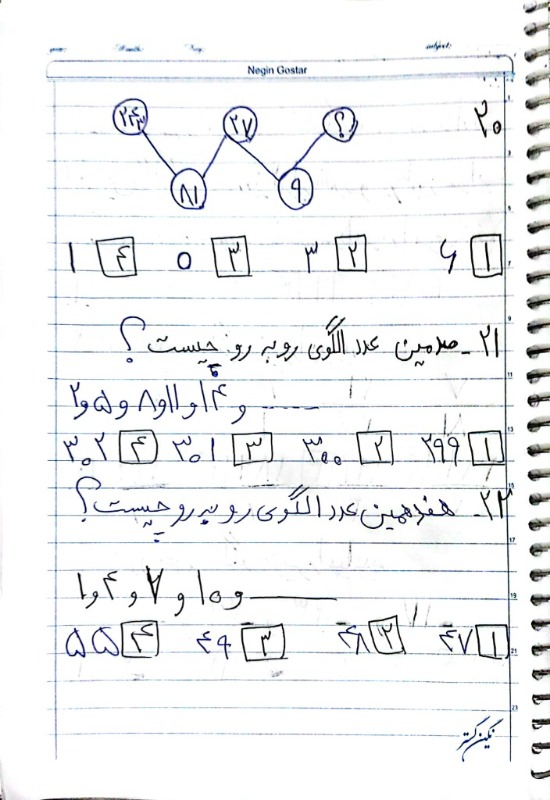 Negin Gostar
۲۰
۲۴۳ ۲۷ ؟
۸۱ ۹
۱ ۶ ۲ ۳ ۳ ۵ ۴ ۱
۲۱- صدمین عدد الگوی روبه رو چیست؟
۲ و ۵ و ۸ و ۱۱ و ۱۴ و
۱ ۲۹۹ ۲ ۳۰۰ ۳ ۳۰۱ ۴ ۳۰۲
۲۲- هفدهمین عدد الگوی روبه رو چیست؟
۱ و ۴ و ۷ و ۱۰ و
۱ ۴۷ ۲ ۴۸ ۳ ۴۹ ۴ ۵۵
نگین گستر